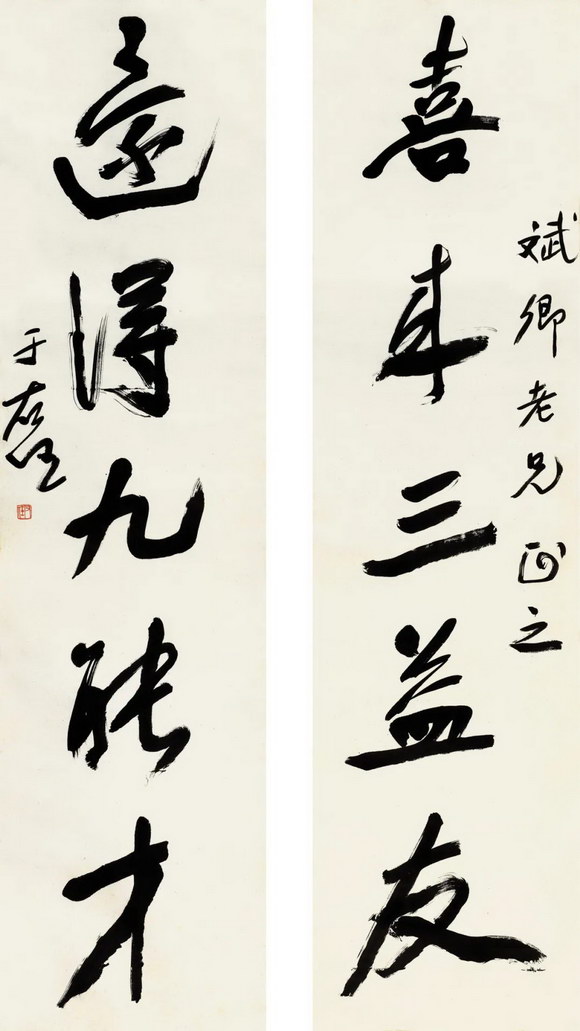 斌卿老兄正之
喜来三益友
还得九能才
于右任